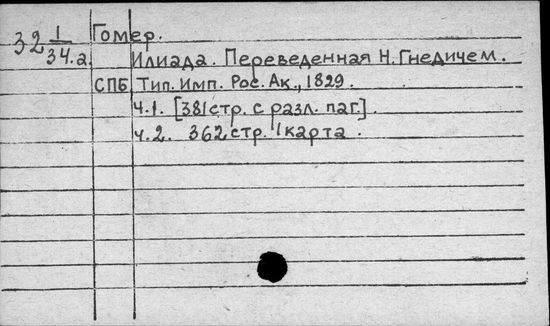 32 1/34.а. Гомер.
Илиада. Переведенная Н. Гнедичем.
СПБ Тип. Имп. Рос. Ак., 1829.
Ч.1. [381 стр. с разл. паг.].
Ч.2. 362 стр. 1 карта.